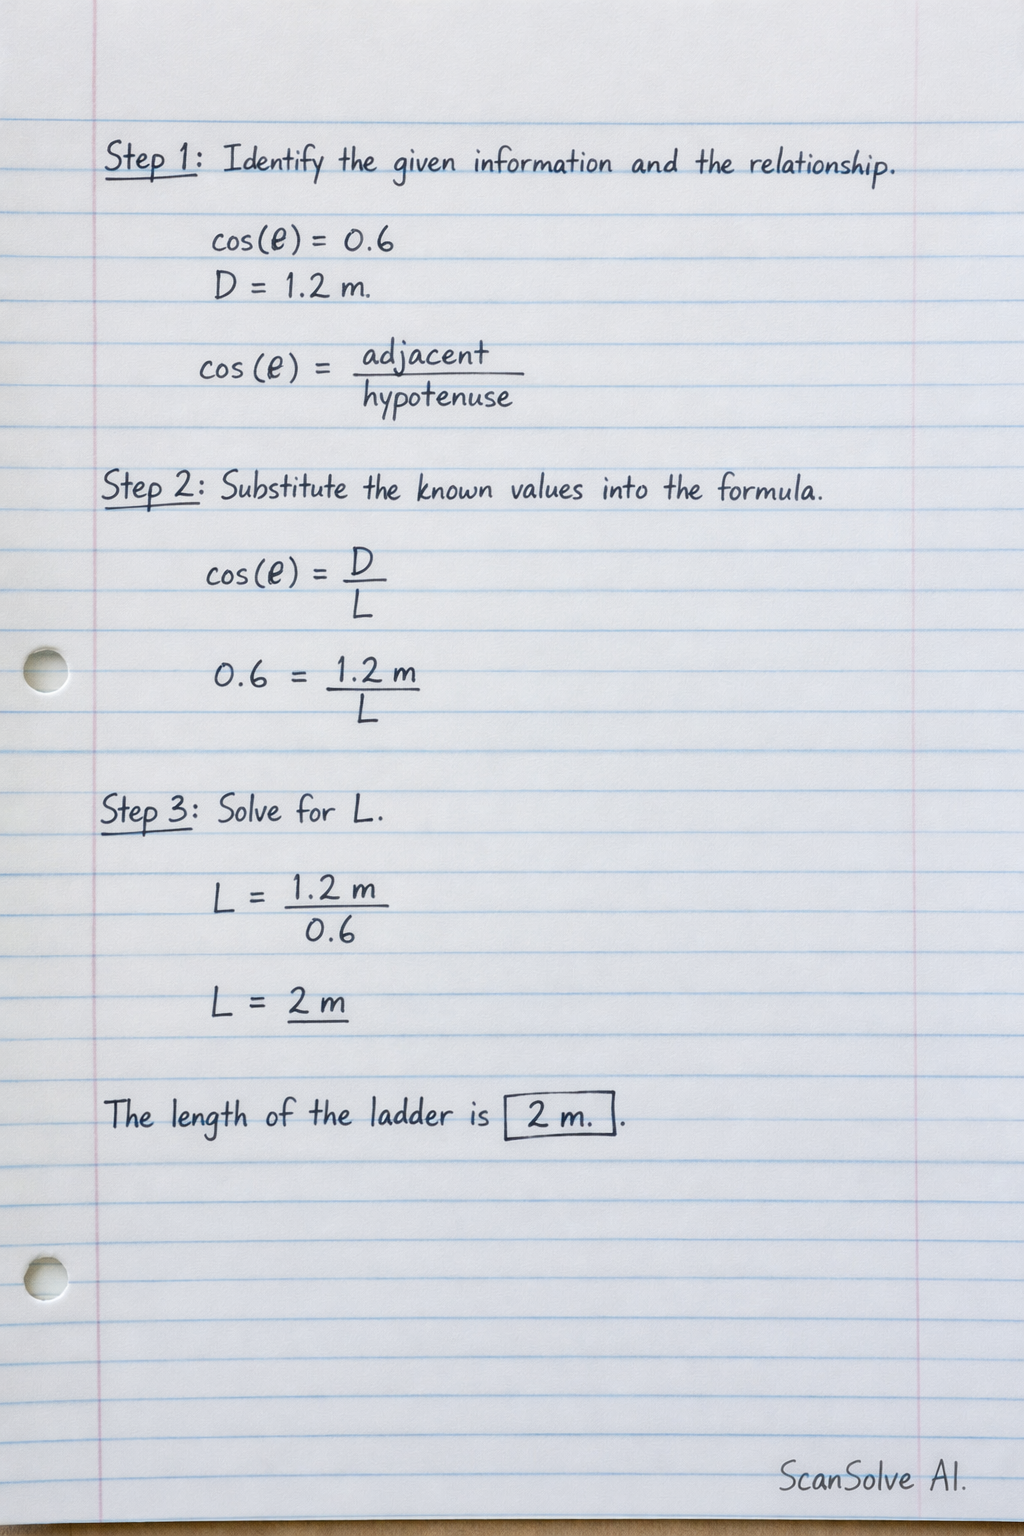 Step 1: Identify the given information and the relationship.
cos(e) = 0.6
D = 1.2 m.
cos(e) = adjacent
hypotenuse
Step 2: Substitute the known values into the formula.
cos(e) = D
L
0.6 = 1.2 m
L
Step 3: Solve for L.
L = 1.2 m
0.6
L = 2 m
The length of the ladder is 2 m. .
ScanSolve AI.